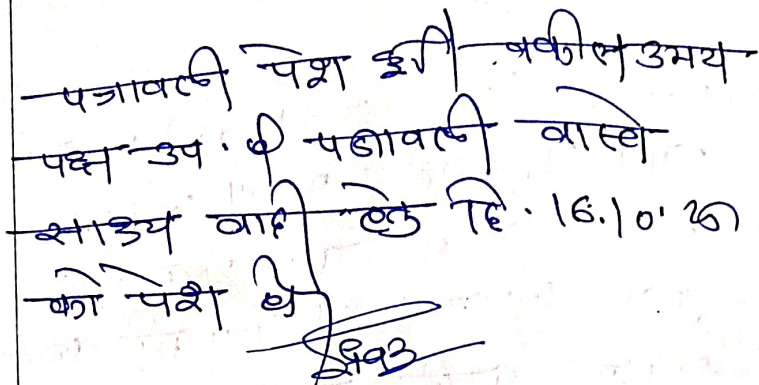 पत्रावली पेश हुई। वकील उभय
पक्ष उप. है पत्रावली वास्ते
साक्ष्य वादी हेतु दि. 16.10.20
को पेश हो